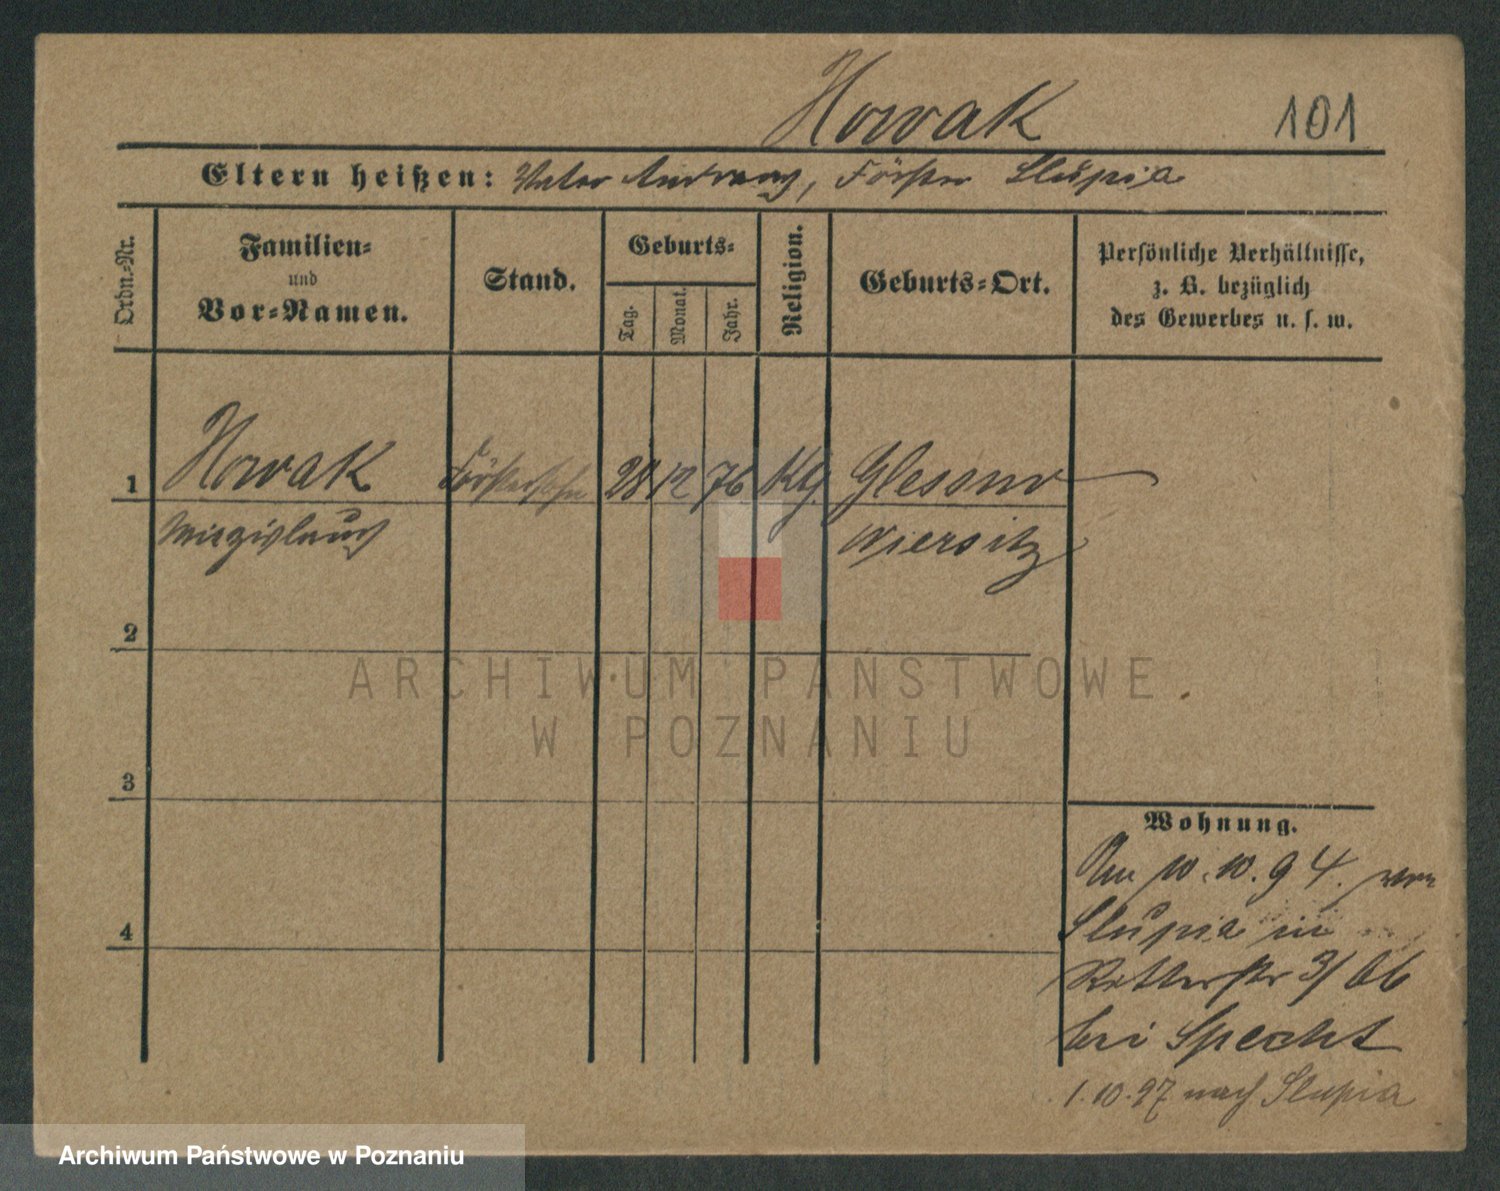 Nowak 101
Eltern heißen: Vater Andreas, Förster Slupia
Ordn.-Nr.
Familien-
und
Vor-Namen.
Stand.
Geburts-
Tag.
Monat.
Jahr.
Religion.
Geburts-Ort.
Persönliche Verhältnisse,
z. B. bezüglich
des Gewerbes u. s. w.
1 Nowak Förstersohn 28 12 76 Kth.
Wirsitz
2
3
4
Wohnung.
Am 10.10.94. von
Slupia in
Ritterstr 3/
bei Specht
1.10.97 nach Slupia
ARCHIWUM PAŃSTWOWE
W POZNANIU
Archiwum Państwowe w Poznaniu